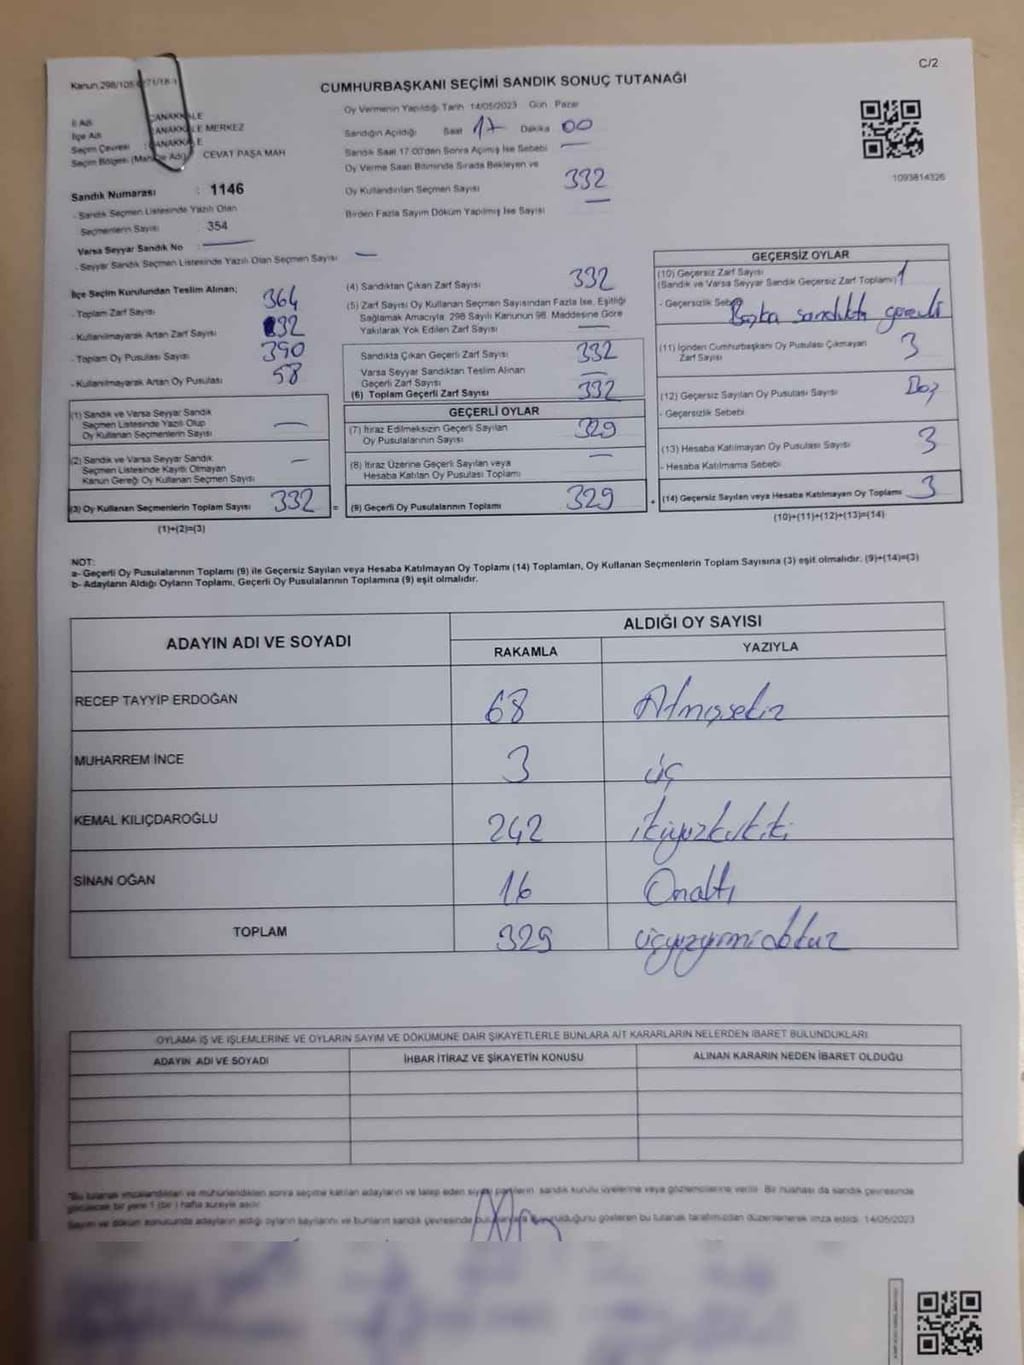 C/2
Kanun 298/105
CUMHURBAŞKANI SEÇİMİ SANDIK SONUÇ TUTANAĞI
İl Adı ÇANAKKALE
İlçe Adı ÇANAKKALE MERKEZ
Seçim Çevresi ÇANAKKALE
Seçim Bölgesi (Mahalle Adı) CEVAT PAŞA MAH
Sandık Numarası : 1146
- Sandık Seçmen Listesinde Yazılı Olan
Seçmenlerin Sayısı : 354
Varsa Seyyar Sandık No
- Seyyar Sandık Seçmen Listesinde Yazılı Olan Seçmen Sayısı —
Oy Vermenin Yapıldığı Tarih 14/05/2023 Gün Pazar
Sandığın Açıldığı Saat 17 Dakika 00
Sandık Saat 17:00'den Sonra Açılmış İse Sebebi —
Oy Verme Saati Bitiminde Sırada Bekleyen ve
Oy Kullandırılan Seçmen Sayısı 332
Birden Fazla Sayım Döküm Yapılmış İse Sayısı —
1093814326
İlçe Seçim Kurulundan Teslim Alınan;
- Toplam Zarf Sayısı 364
- Kullanılmayarak Artan Zarf Sayısı 32
- Toplam Oy Pusulası Sayısı 390
- Kullanılmayarak Artan Oy Pusulası 58
(1) Sandık ve Varsa Seyyar Sandık
Seçmen Listesinde Yazılı Olup
Oy Kullanan Seçmenlerin Sayısı —
(2) Sandık ve Varsa Seyyar Sandık
Seçmen Listesinde Kayıtlı Olmayan
Kanun Gereği Oy Kullanan Seçmen Sayısı —
(3) Oy Kullanan Seçmenlerin Toplam Sayısı 332 =
(1)+(2)=(3)
(4) Sandıktan Çıkan Zarf Sayısı 332
(5) Zarf Sayısı Oy Kullanan Seçmen Sayısından Fazla İse, Eşitliği
Sağlamak Amacıyla, 298 Sayılı Kanunun 98. Maddesine Göre
Yakılarak Yok Edilen Zarf Sayısı —
Sandıkta Çıkan Geçerli Zarf Sayısı 332
Varsa Seyyar Sandıktan Teslim Alınan
Geçerli Zarf Sayısı —
(6) Toplam Geçerli Zarf Sayısı 332
GEÇERLİ OYLAR
(7) İtiraz Edilmeksizin Geçerli Sayılan
Oy Pusulalarının Sayısı 329
(8) İtiraz Üzerine Geçerli Sayılan veya
Hesaba Katılan Oy Pusulası Toplamı —
(9) Geçerli Oy Pusulalarının Toplamı 329 +
GEÇERSİZ OYLAR
(10) Geçersiz Zarf Sayısı
(Sandık ve Varsa Seyyar Sandık Geçersiz Zarf Toplamı) 1
- Geçersizlik Sebebi Başka sandıkta
(11) İçinden Cumhurbaşkanı Oy Pusulası Çıkmayan
Zarf Sayısı 3
(12) Geçersiz Sayılan Oy Pusulası Sayısı Boş
- Geçersizlik Sebebi
(13) Hesaba Katılmayan Oy Pusulası Sayısı 3
- Hesaba Katılmama Sebebi
(14) Geçersiz Sayılan veya Hesaba Katılmayan Oy Toplamı 3
(10)+(11)+(12)+(13)=(14)
NOT:
a- Geçerli Oy Pusulalarının Toplamı (9) ile Geçersiz Sayılan veya Hesaba Katılmayan Oy Toplamı (14) Toplamları, Oy Kullanan Seçmenlerin Toplam Sayısına (3) eşit olmalıdır. (9)+(14)=(3)
b- Adayların Aldığı Oyların Toplamı, Geçerli Oy Pusulalarının Toplamına (9) eşit olmalıdır.
ADAYIN ADI VE SOYADI
ALDIĞI OY SAYISI
RAKAMLA YAZIYLA
RECEP TAYYİP ERDOĞAN 68 Atmışsekiz
MUHARREM İNCE 3 üç
KEMAL KILIÇDAROĞLU 242 ikiyüzkırkiki
SİNAN OĞAN 16 Onaltı
TOPLAM 329 üçyüzyirmidokuz
OYLAMA İŞ VE İŞLEMLERİNE VE OYLARIN SAYIM VE DÖKÜMÜNE DAİR ŞİKAYETLERLE BUNLARA AİT KARARLARIN NELERDEN İBARET BULUNDUKLARI
ADAYIN ADI VE SOYADI İHBAR İTİRAZ VE ŞİKAYETİN KONUSU ALINAN KARARIN NEDEN İBARET OLDUĞU
*Bu tutanak imzalandıktan ve mühürlendikten sonra seçime katılan adayların ve talep eden siyasi partilerin sandık kurulu üyelerine veya gözlemcilerine verilir. Bir nüshası da sandık çevresinde
görülecek bir yere 1 (bir) hafta süreyle asılır.
Sayım ve döküm sonucunda adayların aldığı oyların sayılarını ve bunların sandık çevresinde gösteren bu tutanak tarafımızdan düzenlenerek imza edildi. 14/05/2023